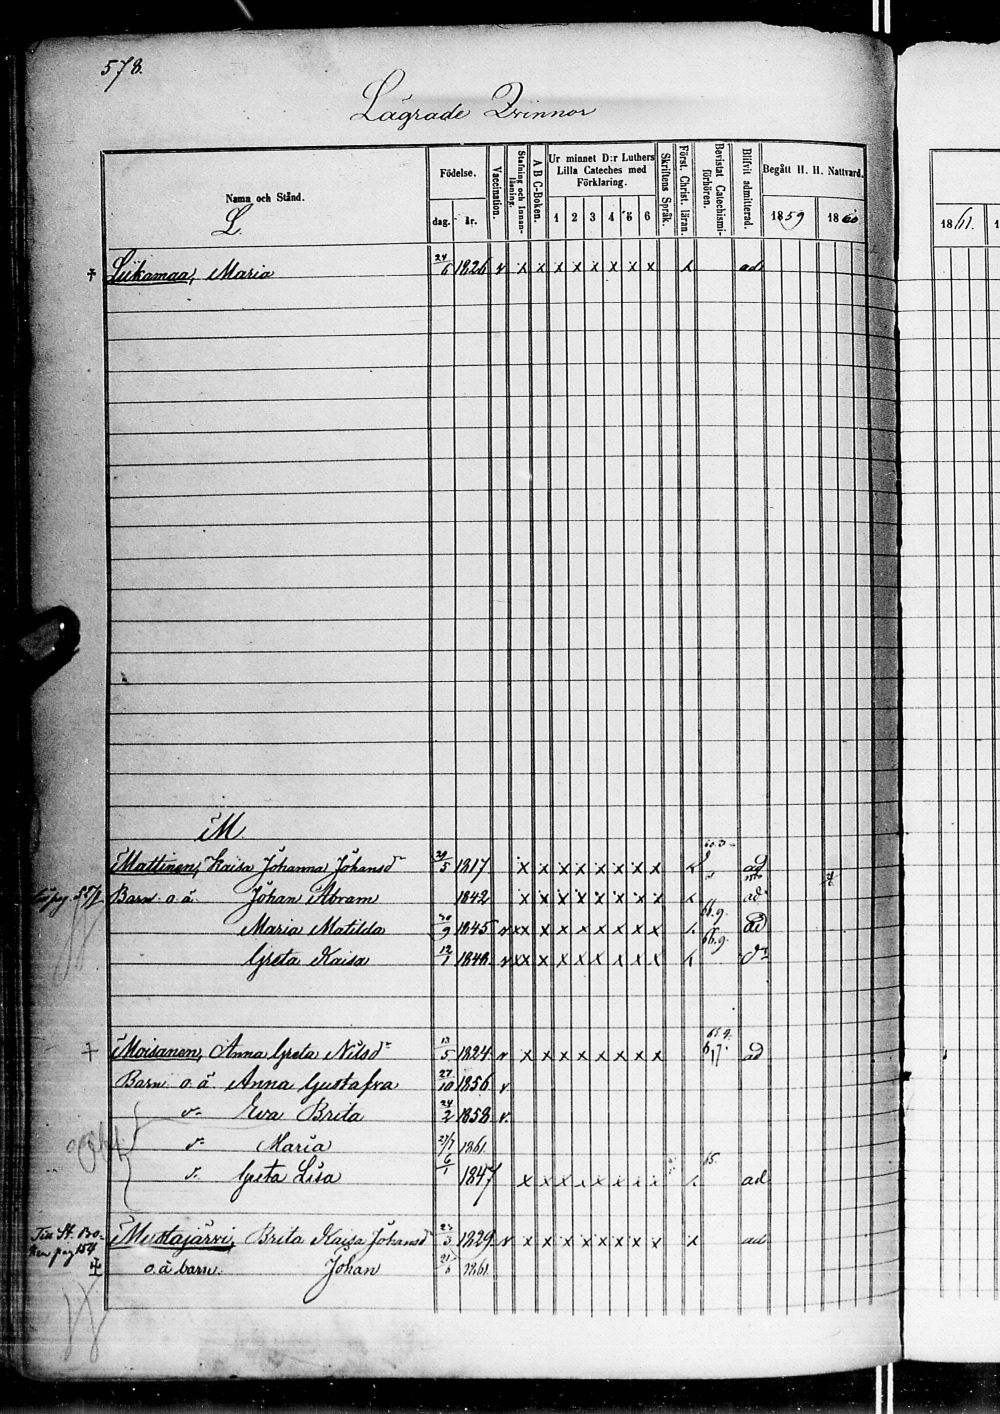 578.
Lägrade Qvinnor
Nama och Stånd.
L.
Födelse.
dag. år.
Vaccination.
Stafning och Innanläsning.
A B C-Boken
Ur minnet D:r Luthers
Lilla Cateches med
Förklaring.
1 2 3 4 5 6
Skriftens Språk.
Först. Christ. läran.
Bevistat Catechismiförhören.
Blifvit admitterad.
Begått H. H. Nattvard.
1859 1860
1861.
† Liikamaa, Maria 24/6 1826 v x x x x x x x x x ad
M
60.3
Mattinen, Kaisa Johanna Johansdr 29/5 1817 x x x x x x x x x ad
pag. 557. Barn o.ä. Johan Abram 1842 x x x x x x x x x ad
66.9.
Maria Matilda 30/9 1845 v xx x x x x x x x x ad
66.9.
Greta Kaisa 12/1 1848 v xx x x x x x x x x dr
65.9.
† Moisanen, Anna Greta Nilsdr 13/5 1824 v x x x x x x x x ad
Barn o.ä. Anna Gustafva 27/10 1856 v
dr Eva Brita 24/2 1858 v.
dr Maria 27/7 1861.
65.
dr Greta Lisa 6/1 1847 x x x x x x x x x ad
Till St. Bo-
ken pag 154
Mustajärvi, Brita Kaisa Johansd 23/3 1829 v x x x x x x x x x ad
o.ä barn. Johan 21/6 1861.